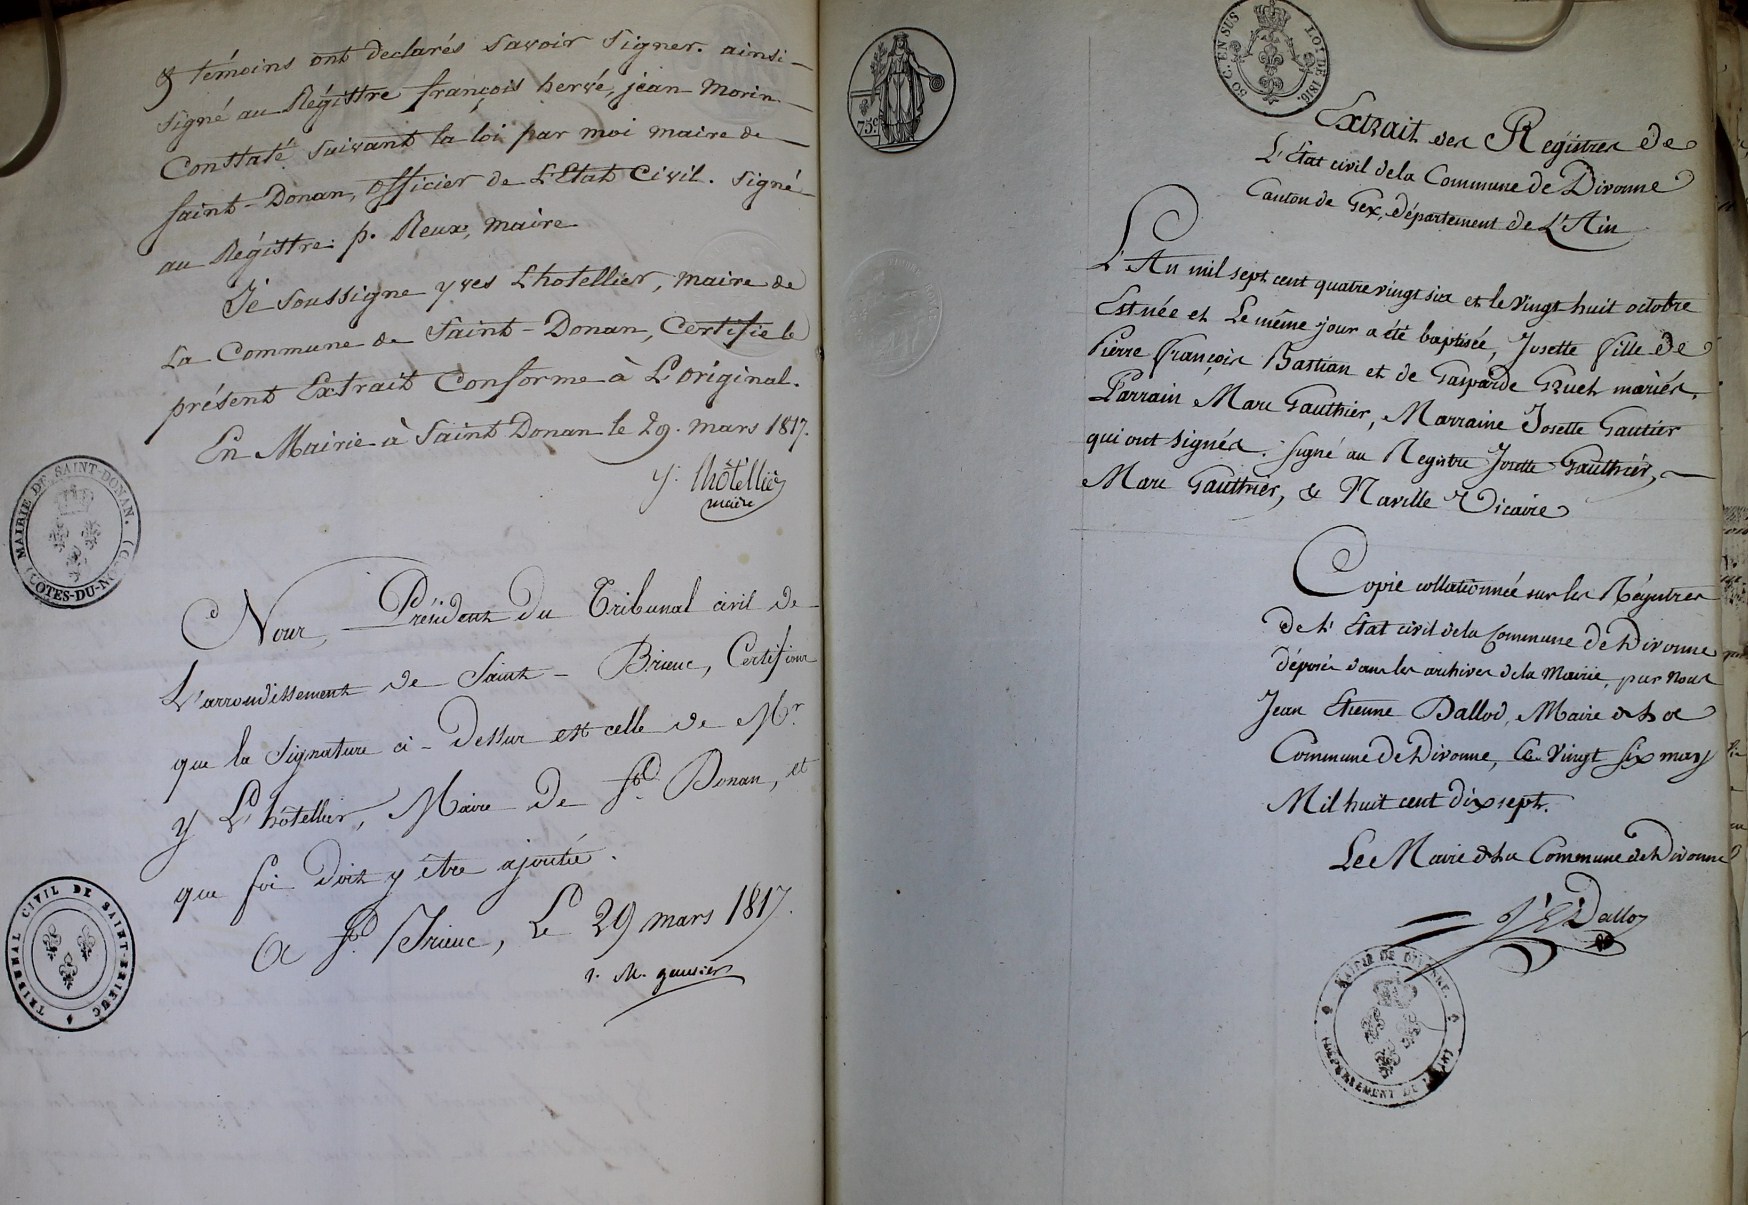 & témoins ont declarés savoir signer. ainsi
signé au Régistre françois hervé, jean Morin
Constaté suivant la loi par moi maire de
saint-Donan, officier de L'Etat Civil. signé
au Régistre: p. Reux, maire
Jé soussigne yves Lhotellier, maire de
La Commune de Saint-Donan, Certifie le
présent Extrait Conforme à L'original.
En Mairie à Saint Donan le 29. mars 1817.
y. lhôtellier
maire
MAIRIE DE SAINT-DONAN. (COTES-DU-NO
Nous, Président du Tribunal civil de
L'arrondissement de Saint-Brieuc, Certifions
que la signature ci-dessus est celle de Mr.
y L'hôtellier, Maire de St. Donan, et
que foi doit y être ajoutée.
A St. Brieuc, Le 29 mars 1817.
TRIBUNAL CIVIL DE SAINT-BRIEUC
75 c
50 C. EN SUS LOI DE 1816.
Extrait des Régistres de
L'Etat civil de la Commune de Divonne
Canton de Gex, département de L'Ain
L'An mil sept cent quatre vingt six et le vingt huit octobre
Est née et Le même jour a été baptisée, Josette fille de
Pierre François Bastian et de Gasparde Gruet mariés,
Parrain Marc Gauthier, Marraine Josette Gautier
qui ont signés. signé au Registre Josette Gauthier,
Marc Gauthier, & Naville Vicaire
Copie collationnée sur les Régistres
de L'Etat civil de la Commune de Divonne
déposés dans les archives de la Mairie, par Nous
Jean Etienne Dallod, Maire de la
Commune de Divonne, Ce Vingt six mars
Mil huit cent dix sept.
Le Maire de la Commune de Divonne
J E Dalloz
MAIRIE DE DIVONNE. (DÉPARTEMENT DE L'AIN)